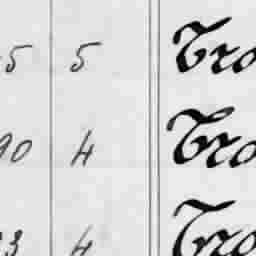 5 5 Tro
90 4 Tro
3 4 Tro